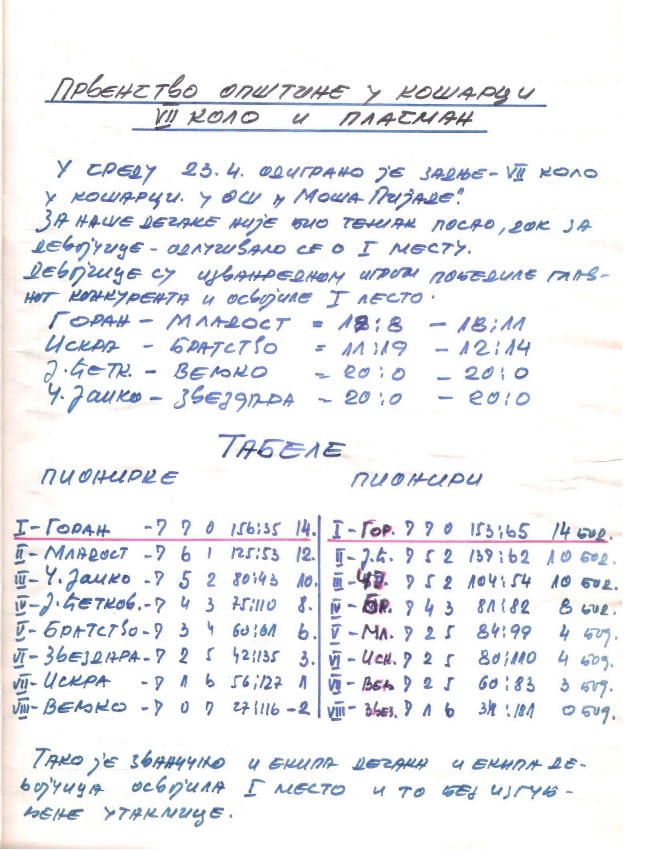 Првенство општине у кошарци
VII коло и пласман
У среду 23.4. одиграно је задње - VII коло
у кошарци у ОШ „Моша Пијаде".
За наше дечаке није био тежак посао, док за
девојчице - одлучивало се о I месту.
Девојчице су изванредном игром победиле глав-
ног конкурента и освојиле I место.
Горан - Младост = 18:8 - 18:11
Искра - Братство = 11:19 - 12:14
Ј. Ћетк. - Вељко - 20:0 - 20:0
Ч. Јанко - Звездара - 20:0 - 20:0
Табеле
пионирке пионири
I - Горан - 7 7 0 156:35 14. I - Гор. 7 7 0 153:65 14 бод.
II - Младост - 7 6 1 125:53 12. II - Ј.Ћ. 7 5 2 139:62 10 бод.
III - Ч. Јанко - 7 5 2 80:43 10. III - ЧЈ. 7 5 2 104:54 10 бод.
IV - Ј. Ћетков. - 7 4 3 75:110 8. IV - Бр. 7 4 3 81:82 8 бод.
V - Братство - 7 3 4 60:61 6. V - Мл. 7 2 5 84:99 4 бод.
VI - Звездара - 7 2 5 42:135 3. VI - Иск. 7 2 5 80:110 4 бод.
VII - Искра - 7 1 6 56:127 1 VII - Вељ. 7 2 5 60:83 3 бод.
VIII - Вељко - 7 0 7 27:116 -2 VIII - Звез. 7 1 6 :181 0 бод.
Тако је званично и екипа дечака и екипа де-
војчица освојила I место и то без изгуб-
љене утакмице.